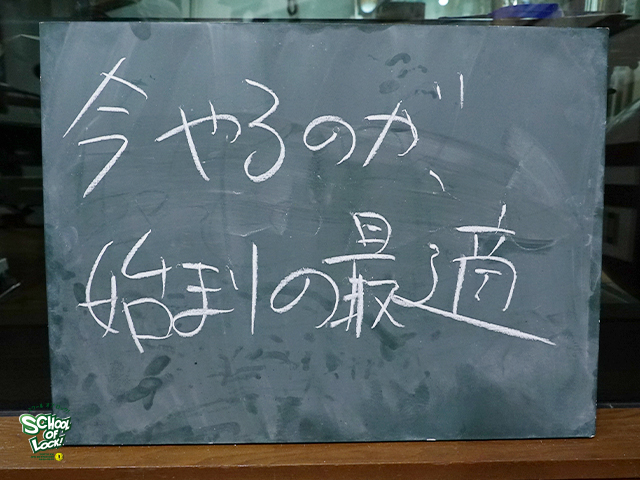 今やるのが、
始まりの最適
SCHOOL
OF
LOCK!